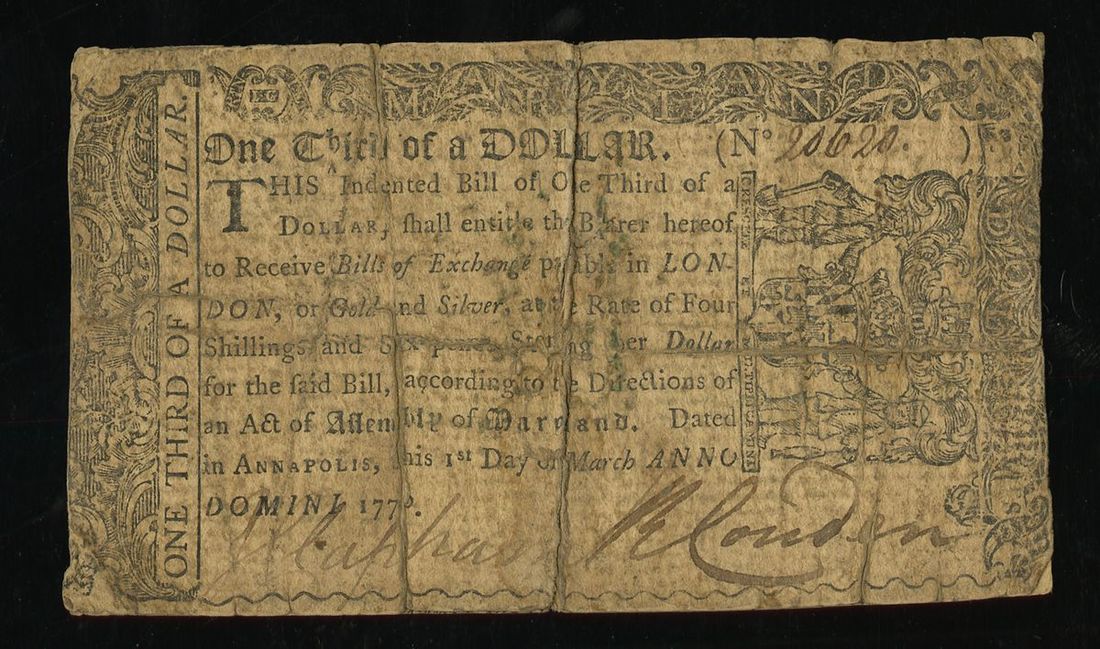 MARYLAND
One Third of a DOLLAR. (No 20620. )
THIS Indented Bill of One Third of a
DOLLAR, ſhall entitle the Bearer hereof
to Receive Bills of Exchange payable in LON-
DON, or Gold and Silver, at the Rate of Four
Shillings and Six-pence Sterling per Dollar
for the ſaid Bill, according to the Directions of
an Act of Aſſembly of Maryland. Dated
in ANNAPOLIS, this 1st Day of March ANNO
DOMINI 1770.
R Couden
ONE THIRD OF A DOLLAR.
CRESCITE ET